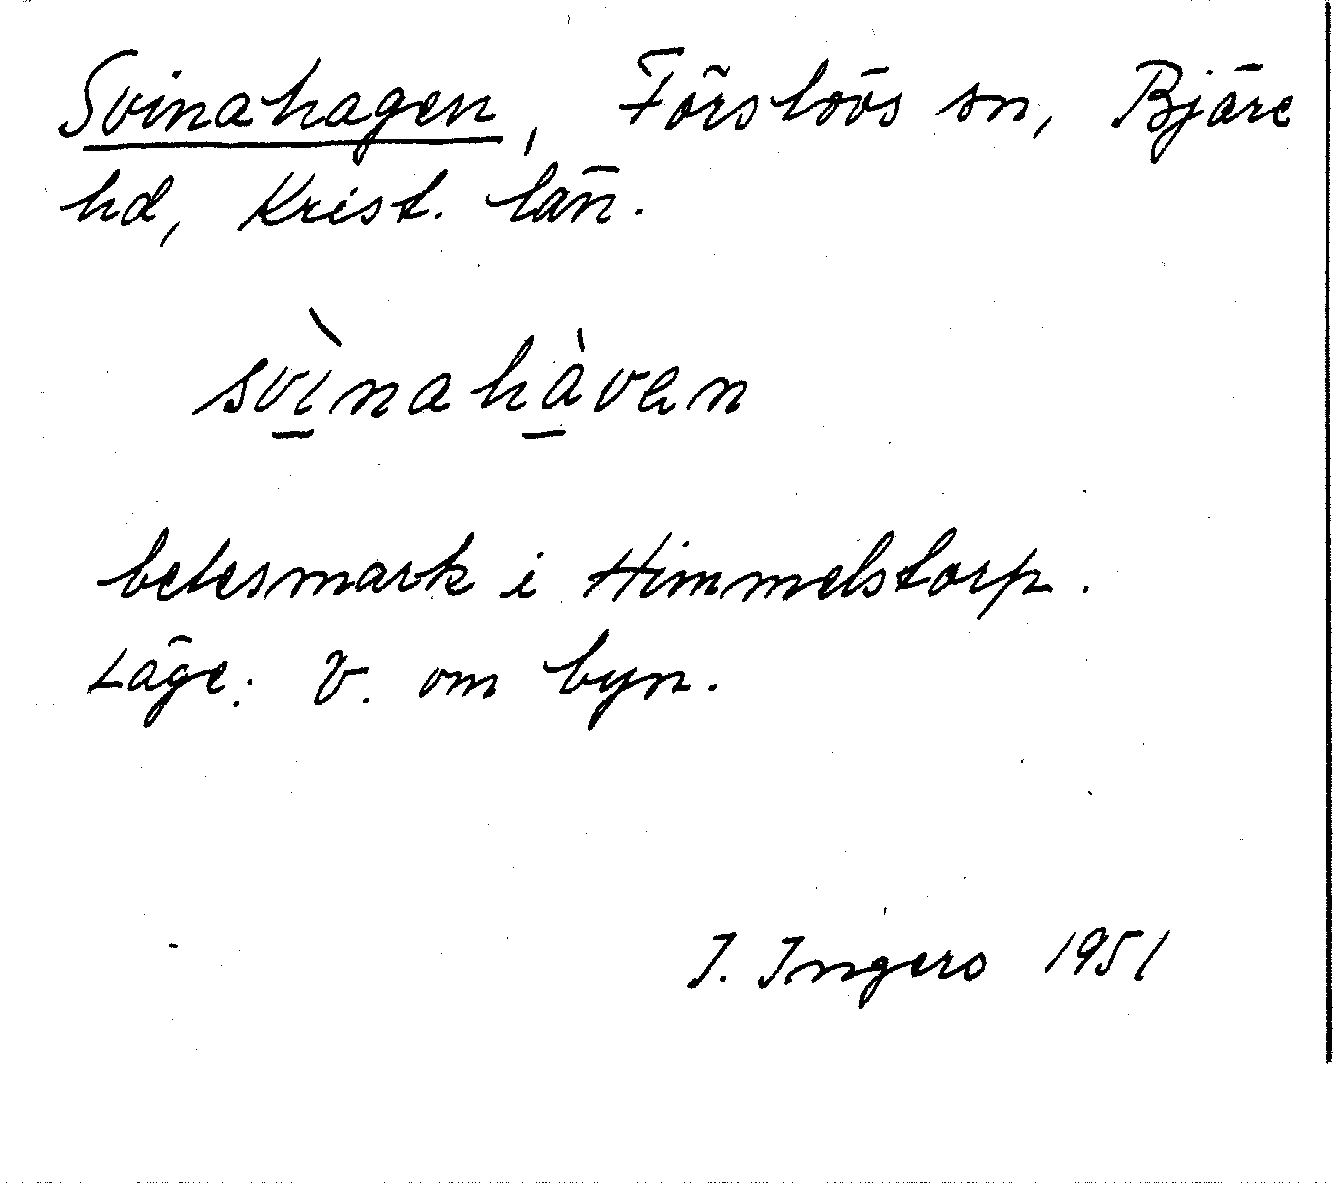 Svinahagen, Förslövs sn, Bjäre
hd, Krist. län.
svìnahàven
betesmark i Himmelstorp.
Läge: V. om byn.
I. Ingers 1951